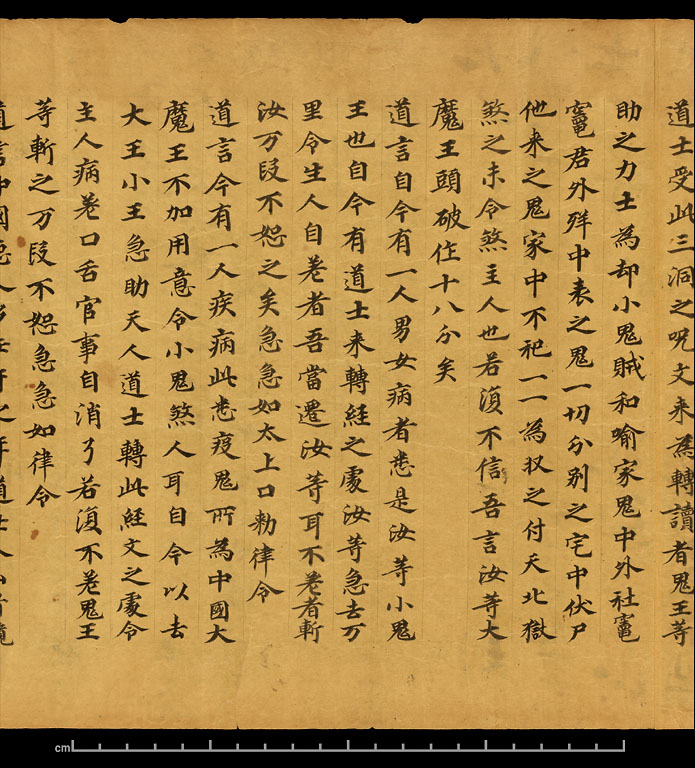 道士受此三洞之呪文来為轉讀者鬼王等
助之力士為却小鬼賊和喻家鬼中外社竈
竈君外殍中表之鬼一切分别之宅中伏尸
他来之鬼家中不祀一一為收之付天北獄
煞之未令煞主人也若復不信吾言汝等大
魔王頭破住十八分矣
道言自今有一人男女病者悉是汝等小鬼
王也自今有道士来轉經之處汝等急去万
里令生人自差者吾當遷汝等耳不差者斬
汝万段不恕之矣急急如太上口勑律令
道言今有一人疾病此悉疫鬼所為中國大
魔王不加用意令小鬼煞人耳自今以去
大王小王急助天人道士轉此經文之處令
主人病差口舌官事自消了若復不差鬼王
等斬之万段不恕急急如律令
道言中國
cm